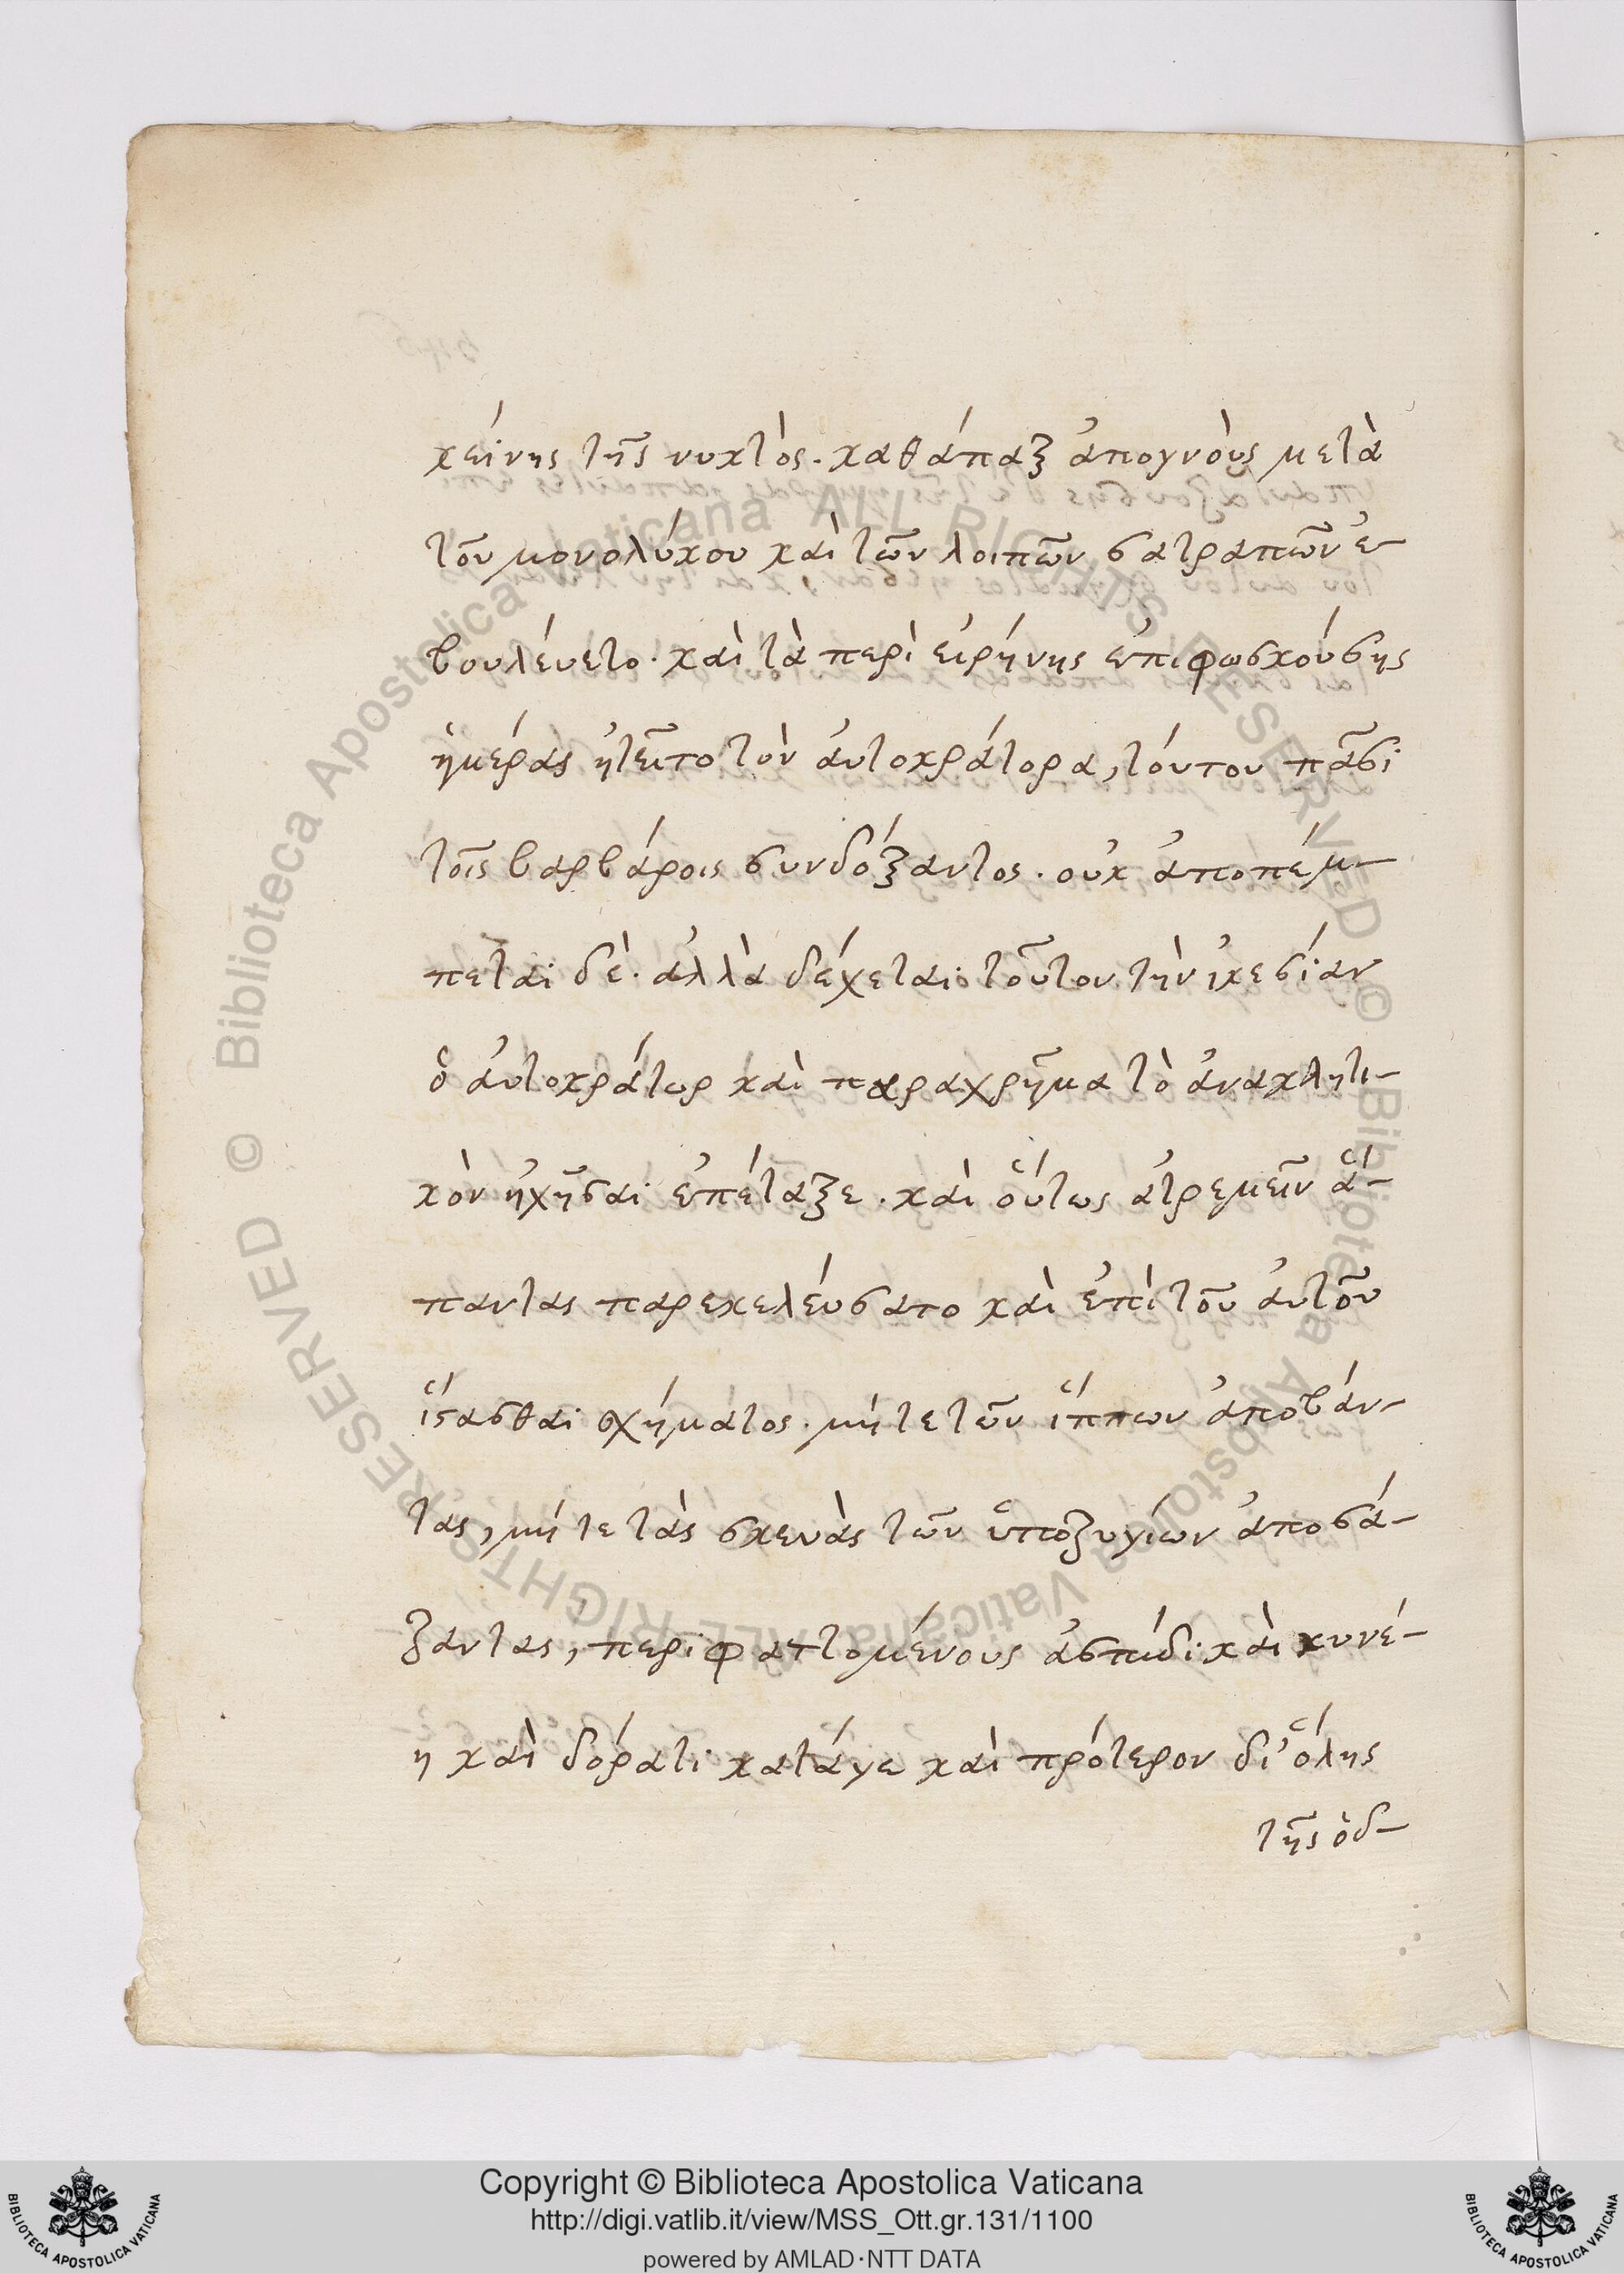 κείνης τῆς νυκτὸς. καθάπαξ ἀπογνοὺς μετὰ
τοῦ μονολύκου καὶ τῶν λοιπῶν σατραπῶν ἐ-
βουλέυετο. καὶ τὰ περὶ εἰρήνης ἐπιφωσκούσης
ἡμέρας ἠτεῖτο τὸν ἀυτοκράτορα, τόυτου πᾶσι
τοῖς βαρβάροις συνδόξαντος. οὐκ ἀποπέμ-
πεται δὲ. ἀλλὰ δέχεται τοῦτον τὴν ἱκεσίαν
ὁ ἀυτοκράτωρ καὶ παραχρῆμα τὸ ἀνακλητι-
κὸν ἠχῆσαι ἐπέταξε. καὶ ὅυτως ἀτρεμεῖν ἅ-
παντας παρεκελέυσατο καὶ ἐπὶ τοῦ ἀυτοῦ
ἵστασθαι σχήματος. μήτε τῶν ἵππων ἀποβάν-
τας, μήτε τὰς σκευὰς τῶν ὑποζυγίων ἀποσά-
ξαντας, περιφραττομένους ἀσπίδι καὶ κυνέ-
η καὶ δόρατι κατάγε καὶ πρότερον δι' ὅλης
τῆς ὁδ-
Copyright © Biblioteca Apostolica Vaticana
http://digi.vatlib.it/view/MSS_Ott.gr.131/1100
powered by AMLAD·NTT DATA
BIBLIOTECA APOSTOLICA VATICANA
BIBLIOTECA APOSTOLICA VATICANA
© Biblioteca Apostolica Vaticana ALL RIGHTS RESERVED © Biblioteca Apostolica Vaticana ALL RIGHTS RESERVED